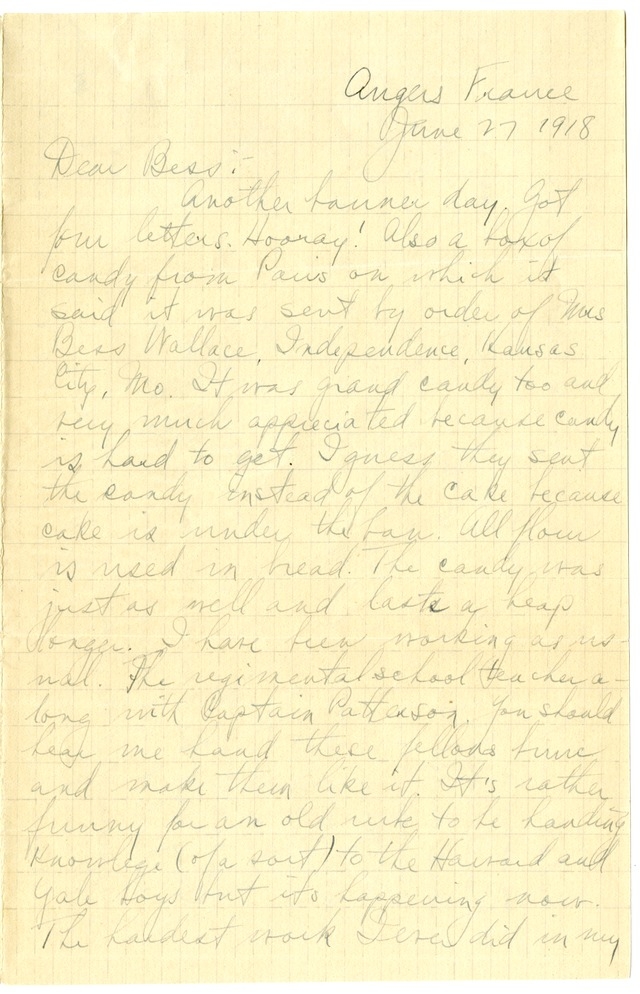 Angers France
June 27 1918
Dear Bess:-
Another banner day. Got
four letters. Hooray! Also a box of
candy from Paris on which it
said it was sent by order of Miss
Bess Wallace, Independence, Kansas
City, Mo. It was grand candy too and
very much appreciated because candy
is hard to get. I guess they sent
the candy instead of the cake because
cake is under the ban. All flour
is used in bread. The candy was
just as well and lasts a heap
longer. I have been working as us-
ual. The regimental school teacher a-
long with Captain Patterson. You should
hear me hand these fellows
and make them like it. It's rather
funny for an old rube to be handing
knowlege (of a sort) to the Harvard and
Yale boys but its happening now.
The hardest work I ever did in my